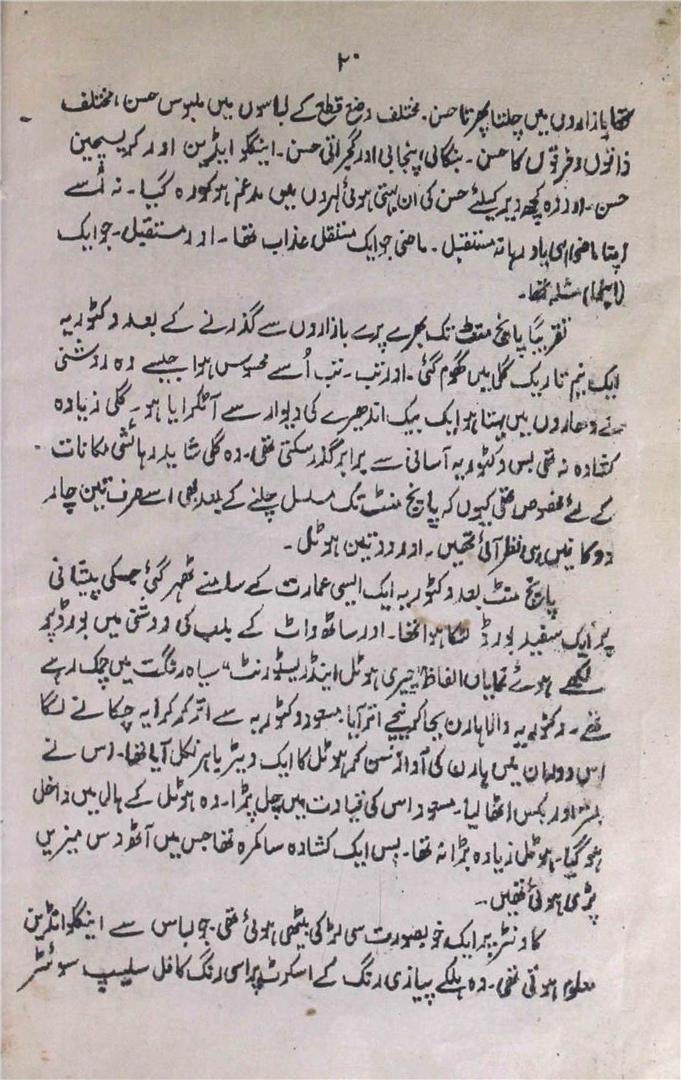 ۲۰
تھا بازاروں میں چلتا پھرتا حسن۔ مختلف وضع قطع کے لباسوں میں ملبوس حسن، مختلف
ذاتوں و فرقوں کا حسن۔ بنگالی، پنجابی اور گجراتی حسن۔ اینگلو انڈین اور کریسچین
حسن۔ اور وہ کچھ دیر کیلئے حسن کی ان بہتی ہوئی لہروں میں مدغم ہو کر رہ گیا۔ نہ اُسے
اپنا ماضی ہی یاد رہا نہ مستقبل۔ ماضی جو ایک مستقل عذاب تھا۔ اور مستقبل۔ جو ایک
مسئلہ تھا۔
تقریباً پانچ منٹ تک بھرے پرے بازاروں سے گذرنے کے بعد وکٹوریہ
ایک نیم تاریک گلی میں گھوم گئی۔ اور تب۔ تب اُسے محسوس ہوا جیسے وہ روشنی
کے دھاروں میں بہتا ہوا یک بیک اندھیرے کی دیوار سے آ ٹکرایا ہو۔ گلی زیادہ
کشادہ نہ تھی بس وکٹوریہ آسانی سے برابر گذر سکتی تھی۔ وہ گلی شاید رہائشی مکانات
کے لئے مخصوص تھی کیوں کہ پانچ منٹ تک مسلسل چلنے کے بعد بھی اسے صرف تین چار
دوکانیں ہی نظر آئی تھیں۔ اور دو تین ہوٹل۔
پانچ منٹ بعد وکٹوریہ ایک ایسی عمارت کے سامنے ٹھہر گئی جسکی پیشانی
پر ایک سفید بورڈ لٹکا ہوا تھا۔ اور ساٹھ واٹ کے بلب کی روشنی میں بورڈ پر
لکھے ہوئے نمایاں الفاظ "چیری ہوٹل اینڈ ریسٹورنٹ" سیاہ رنگت میں چمک رہے
تھے۔ وکٹوریہ والا ہارن بجا کر نیچے اتر آیا۔ مسعود وکٹوریہ سے اتر کر کرایہ چکانے لگا
اس دوران میں ہارن کی آواز سن کر ہوٹل کا ایک ویٹر باہر نکل آیا تھا۔ اس نے
بستر اور بکس اٹھا لیا۔ مسعود اس کی قیادت میں چل پڑا۔ وہ ہوٹل کے ہال میں داخل
ہو گیا۔ ہوٹل زیادہ بڑا نہ تھا۔ بس ایک کشادہ سا کمرہ تھا جس میں آٹھ دس میزیں
پڑی ہوئی تھیں۔
کاونٹر پر ایک خوبصورت سی لڑکی بیٹھی ہوئی تھی۔ جو لباس سے اینگلو انڈین
معلوم ہوتی تھی۔ وہ ہلکے پیازی رنگ کے اسکرٹ پر اسی رنگ کا فل سلیپ سوئٹر